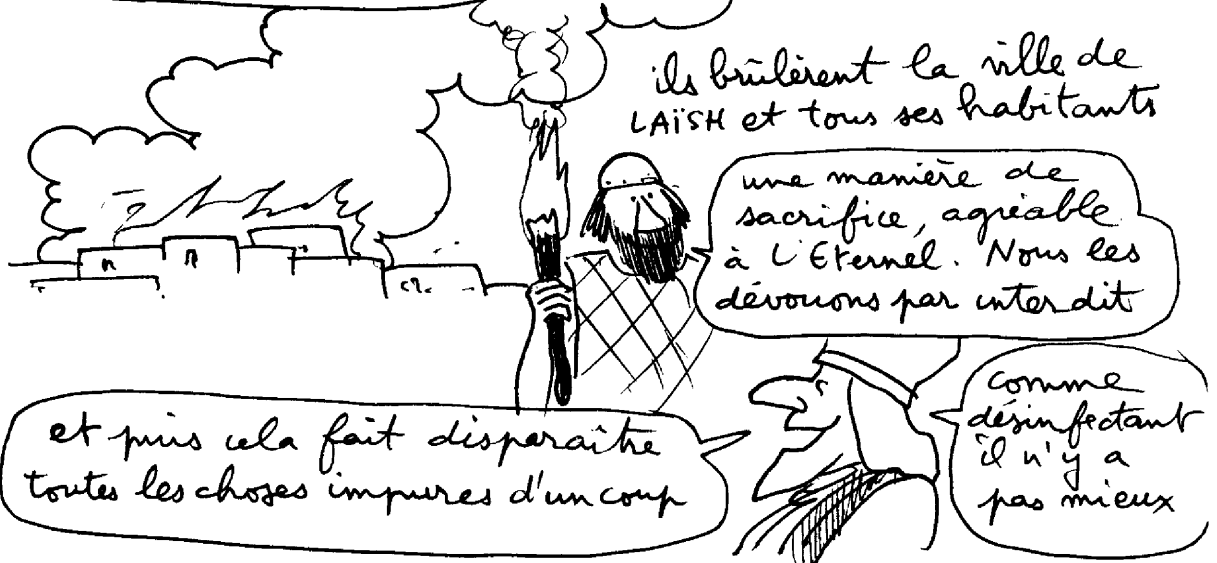 ils brûlèrent la ville de
LAÏSH et tous ses habitants
une manière de
sacrifice, agréable
à L'Eternel. Nous les
dévouons par interdit
et puis cela fait disparaître
toutes les choses impures d'un coup
comme
désinfectant
il n'y a
pas mieux